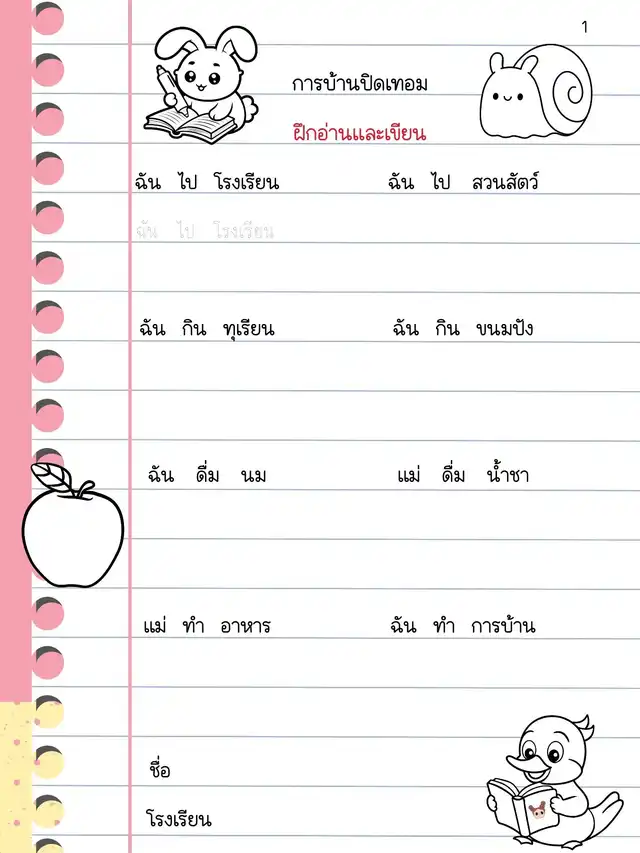 1
การบ้านปิดเทอม
ฝึกอ่านและเขียน
ฉัน ไป โรงเรียน ฉัน ไป สวนสัตว์
ฉัน ไป โรงเรียน
ฉัน กิน ทุเรียน ฉัน กิน ขนมปัง
ฉัน ดื่ม นม แม่ ดื่ม น้ำชา
แม่ ทำ อาหาร ฉัน ทำ การบ้าน
ชื่อ
โรงเรียน